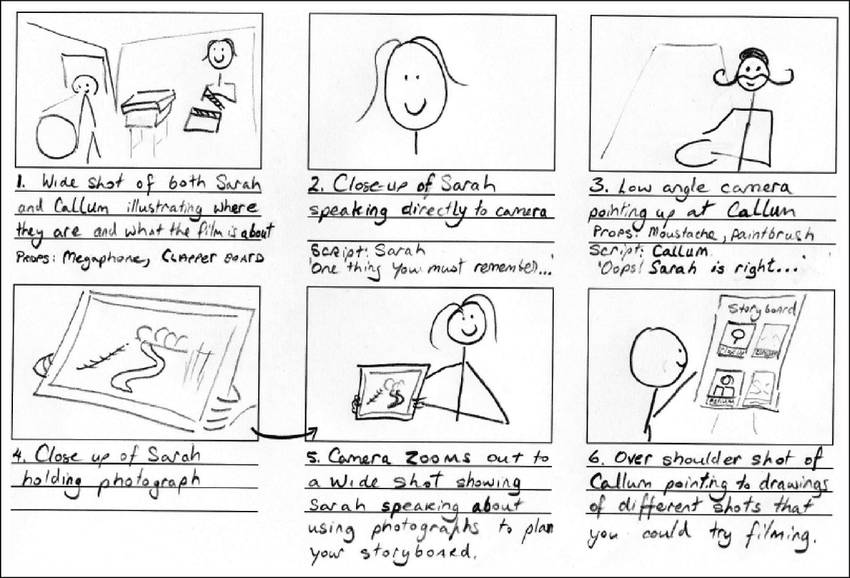 1. Wide shot of both Sarah
and Callum illustrating where
they are and what the film is about
PROPS: MEGAPHONE, CLAPPER BOARD
2. Close-up of Sarah
speaking directly to camera
Script: Sarah
'One thing you must remember...'
3. Low angle camera
pointing up at Callum
Props: Moustache, paintbrush
Script: Callum
'Oops! Sarah is right...'
4. Close up of Sarah
holding photograph
5. Camera zooms out to
a wide shot showing
Sarah speaking about
using photographs to plan
your storyboard.
Storyboard
6. Over shoulder shot of
Callum pointing to drawings
of different shots that
you could try filming.